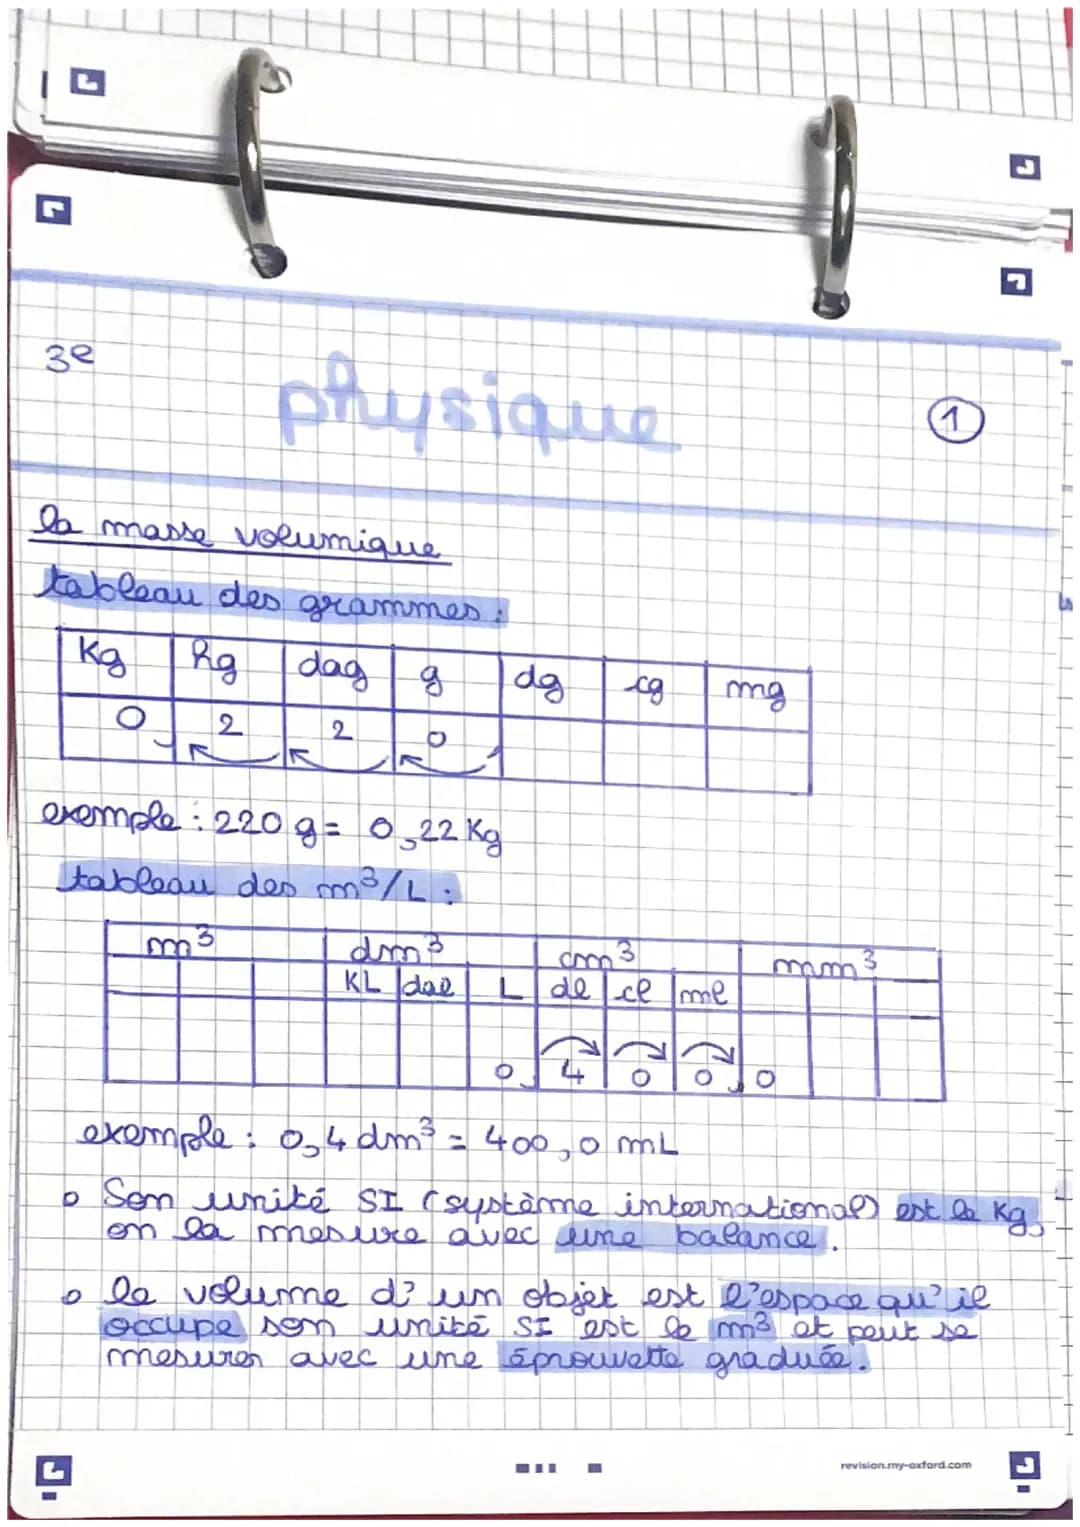 3e
physique
1
la masse volumique
tableau des grammes :
Kg hg dag g dg cg mg
0 2 2 0
exemple : 220 g = 0,22 Kg
tableau des m³/L :
m³ dm³ cm³ mm³
KL dal L dl cl ml
0 4 0 0 0
exemple : 0,4 dm³ = 400,0 mL
Son unité SI (système international) est le Kg,
on la mesure avec une balance.
le volume d'un objet est l'espace qu'il
occupe son unité SI est le m³ et peut se
mesurer avec une éprouvette graduée.
revision.my-oxford.com